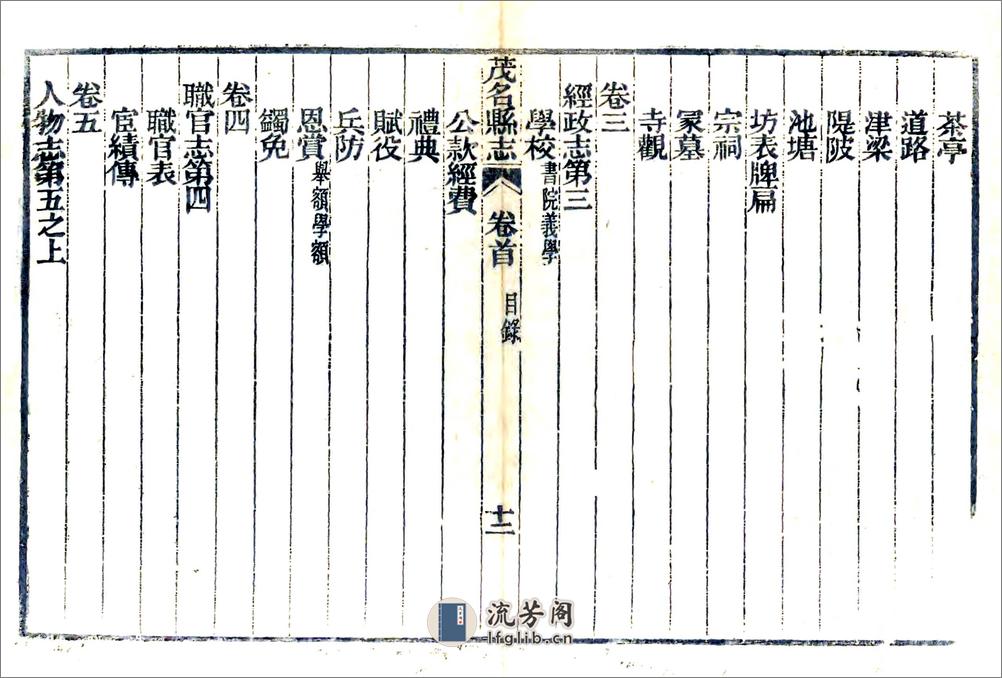 茶亭
道路
津梁
隄陂
池塘
坊表牌扁
宗祠
冢墓
寺觀
卷三
經政志第三
學校書院義學
茂名縣志 卷首 目錄 十二
公款經費
禮典
賦役
兵防
恩賞舉額學額
蠲免
卷四
職官志第四
職官表
宦績傳
卷五
人物志第五之上
流芳阁
lfglib.cn